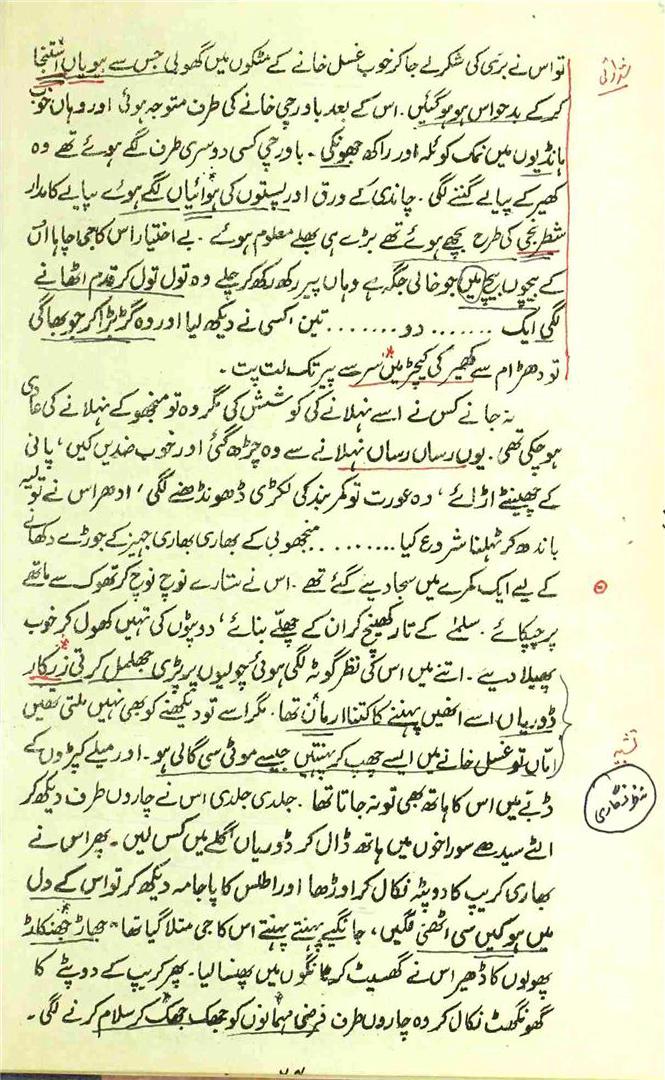 تو اس نے بری کی شکر لے جا کر خوب غسل خانے کے مٹکوں میں گھولی جس سے ہویاں استنجا
کر کے بدحواس ہو ہو گئیں۔ اس کے بعد باورچی خانے کی طرف متوجہ ہوئی اور وہاں خوب
ہانڈیوں میں نمک کوئلہ اور راکھ جھونکی۔ باورچی کسی دوسری طرف لگے ہوئے تھے وہ
کھیر کے پیالے گننے لگی۔ چاندی کے ورق اور پستوں کی ہوائیاں لگے ہوئے پیالے کامدار
شطرنجی کی طرح بچھے ہوئے تھے بڑے ہی بھلے معلوم ہوئے۔ بے اختیار اس کا جی چاہا ان
کے بیچوں بیچ میں جو خالی جگہ ہے وہاں پیر رکھ رکھ کر چلے وہ تول تول کر قدم اٹھانے
لگی ایک ....... دو ........ تین کسی نے دیکھ لیا اور وہ گڑبڑا کر جو بھاگی
تو دھڑام سے کھیر کی کیچڑ میں سر سے پیر تک لت پت۔
نہ جانے کس نے اسے نہلانے کی کوشش کی مگر وہ تو منجھو کے نہلانے کی عادی
ہو چکی تھی۔ یوں رساں رساں نہلانے سے وہ چڑھ گئی اور خوب ضدیں کیں، پانی
کے چھینٹے اڑائے، وہ عورت تو کمر بند کی لکڑی ڈھونڈھنے لگی، ادھر اس نے تولیہ
باندھ کر ٹہلنا شروع کیا ......... منجھو بی کے بھاری بھاری جہیز کے جوڑے دکھانے
کے لیے ایک کمرے میں سجا دیے گئے تھے۔ اس نے ستارے نوچ نوچ کر تھوک سے ماتھے
پر چپکائے۔ سلمے کے تار کھینچ کر ان کے چھلے بنائے، دوپٹوں کی تہیں کھول کر خوب
پھیلا دیے۔ اتنے میں اس کی نظر گوٹہ لگی ہوئی چولیوں پر پڑی جھلمل کرتی زرکار
ڈوریاں اسے انھیں پہننے کا کتنا ارمان تھا۔ مگر اسے تو دیکھنے کو بھی نہیں ملتی تھیں
اماں تو غسل خانے میں ایسے چھپ کر پہنتیں جیسے موٹی سی گالی ہو۔ اور میلے کپڑوں کے
ڈبے میں اس کا ہاتھ بھی تو نہ جاتا تھا۔ جلدی جلدی اس نے چاروں طرف دیکھ کر
الٹے سیدھے سوراخوں میں ہاتھ ڈال کر ڈوریاں گلے میں کس لیں۔ پھر اس نے
بھاری کریپ کا دوپٹہ نکال کر اوڑھا اور اطلس کا پاجامہ دیکھ کر تو اس کے دل
میں ہوکیں سی اٹھنی لگیں، جانگیے پہنتے پہنتے اس کا جی متلا گیا تھا۔ جھاڑ جھنکاڑ
پھولوں کا ڈھیر اس نے گھسیٹ کر ٹانگوں میں پھنسا لیا۔ پھر کریپ کے دوپٹے کا
گھونگھٹ نکال کر وہ چاروں طرف فرضی مہمانوں کو جھک جھک کر سلام کرنے لگی۔
تشبیہ